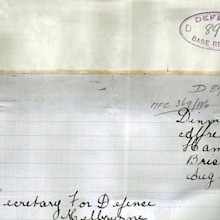 DEFE
D 89
BASE RE
D 89
MFC 369/1/6
Denm
Alfre
Ham
Bris
Aug
Secretary For Defense
Melbourne